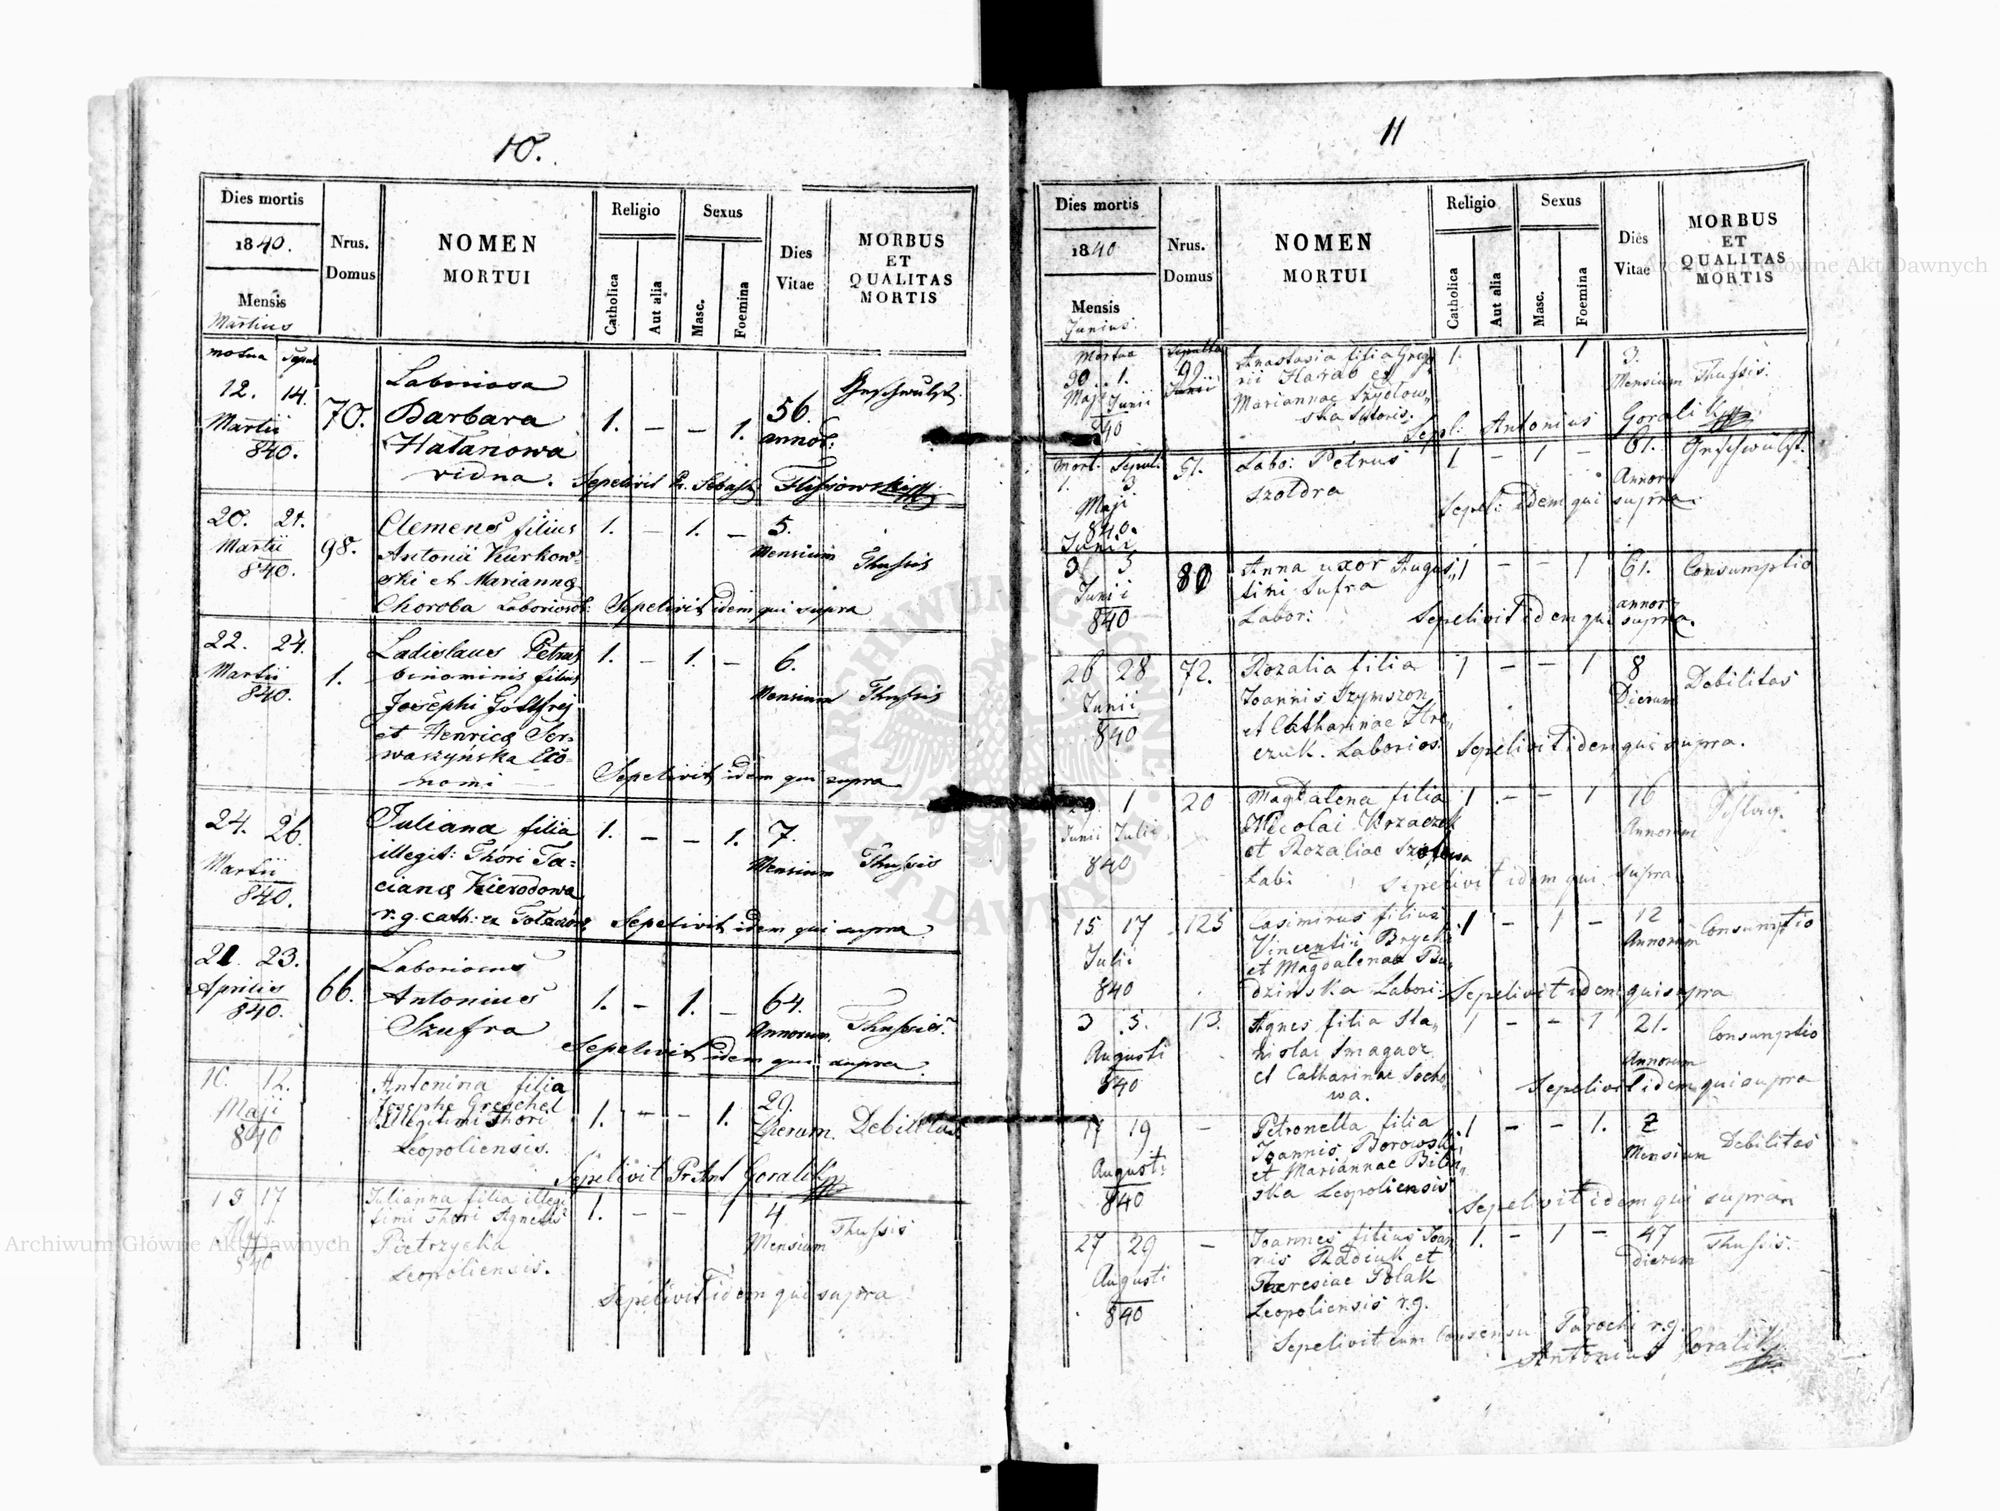 10.
Dies mortis
1840.
Mensis
Martius
Nrus.
Domus
NOMEN
MORTUI
Religio
Catholica
Aut alia
Sexus
Masc.
Foemina
Dies
Vitae
MORBUS
ET
QUALITAS
MORTIS
12. 14.
Martii
840.
70.
Laboriosa
Barbara
Hatanowa
vidua.
1. — — 1.
56.
annor:
Geschwulst.
Sepelivit Pr. Sebast:
20. 21.
Martii
840.
98.
Clemens filius
Antonii Kurkow-
ski et Mariannae
Choroba Laborios:
1. — 1. —
5.
Mensium
Thussis
Sepelivit idem qui supra
22. 24.
Martii
840.
1.
Ladislaus Petrus
binominis filius
Josephi Gottfrej
et Henricae Ser-
waszyńska Eko-
nomi
1. — 1. —
6.
Mensium
Thussis
Sepelivit idem qui supra
24. 26.
Martii
840.
Juliana filia
illegit: Thori Ta-
cianae Kierodowa
r. g. cath:
1. — — 1.
7.
Mensium
Thussis
Sepelivit idem qui supra
21. 23.
Aprilis
840.
66.
Laboriosus
Antonius
Szufra
1. — 1. —
64.
Annorum
Thussis.
Sepelivit idem qui supra.
10. 12.
Maji
840
Antonina filia
Josephi Greschel
Illegitimi Thori
Leopoliensis.
1. — — 1.
29
Dierum.
Debilitas
Sepelivit Pr Ant Goralik
15 17
840
Julianna filia illegi
timi Thori Agnetis
Pietrzycka
Leopoliensis.
1. — — 1
4
Mensium
Thussis
Sepelivit idem qui supra
11
Dies mortis
1840
Mensis
Junius.
Nrus.
Domus
NOMEN
MORTUI
Religio
Catholica
Aut alia
Sexus
Masc.
Foemina
Dies
Vitae
MORBUS
ET
QUALITAS
MORTIS
Mortua Sepulta
30. 1.
Maji Junii
840
99
Anastasia filia Grego
rii Harab et
Mariannae Szydłow-
ska Sutoris.
1. 1
3.
Mensium
Thussis.
Sepel: Antonius Goralik
Mort. Sepul.
1. 3
Maji
840.
Junii
51.
Labo: Petrus
Szoldra
1 — 1 —
61.
Annor
Geschwulst.
Sepel: idem qui supra.
3 5
Junii
840
80
Anna uxor Augus-
tini Sufra
Labor:
1 — — 1
61.
annor
Consumptio
Sepelivit idem qui supra.
26 28
Junii
840
72.
Rozalia filia
Joannis Szymszon
et Catharinae Hre-
czuk. Laborios:
1 — — 1
8
Dierum
Debilitas
Sepelivit idem qui supra.
29. 1
Junii Julii
840
20
Magdalena filia
Nicolai Krzaczek
et Rozaliae
Lab:
1 — — 1
16
Annorum
Sepelivit idem qui supra
15 17
Julii
840
125
Casimirus filius
Vincentii Brycki
et Magdalenae Bu-
dzińska Labori:
1 — 1 —
12
Annorum
Consumptio
Sepelivit idem qui supra
3 5.
Augusti
840
13.
Agnes filia Sta-
nislai Smagacz
et Catharinae Socho-
wa.
1 — — 1
21.
Annorum
Consumptio
Sepelivit idem qui supra
17 19
Augusti
840
—
Petronella filia
Joannis Borowski
et Mariannae Bilin-
ska Leopoliensis
1 — — 1.
2
Mensium
Debilitas
Sepelivit idem qui supra
27 29
Augusti
840
—
Joannes filius Joan
nis Radiuk et
Theresiae Polak
Leopoliensis r. g.
1. — 1 —
47
Dierum
Thussis.
Sepelivit cum Consensu Parochi r. g.
Antonius Goralik
Archiwum Główne Akt Dawnych
Archiwum Główne Akt Dawnych
ARCHIWUM GŁÓWNE AKT DAWNYCH